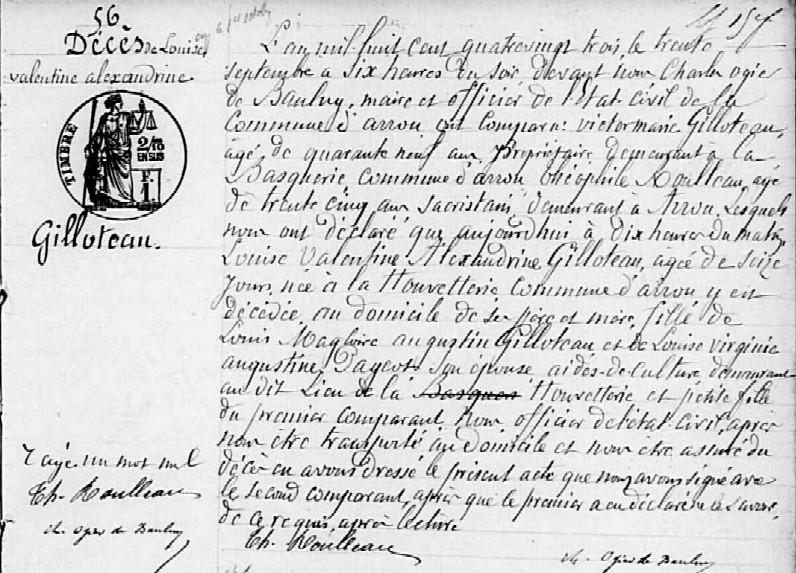 56
Décès de Louise
valentine alexandrine
TIMBRE
2/10
EN SUS
F.
1
Gilloteau.
L'an mil huit cent quatrevingt trois, le trente
septembre à six heures du soir, devant nous Charles ogier
de Baulny, maire et officier de l'Etat-civil de la
Commune d'arrou ont Comparu: victor marie Gilloteau,
agé de quarante neuf ans Propriétaire demeurant à la
Basquerie Commune d'arrou théophile Roulleau, agé
de trente cinq ans sacristain demeurant à Arrou, Lesquels
nous ont déclaré que aujourd'hui à dix heures du matin
Louise Valentine Alexandrine Gilloteau, agée de seize
Jours, née à la Houvetterie Commune d'arrou y est
décédée au domicile de ses père et mère, fille de
Louis Magloire augustin Gilloteau et de Louise virginie
augustine Pageot Son épouse aides-de-culture demeurant
au dit Lieu de la Houvetterie et petite fille
du premier comparant, Nous, officier de l'état-civil, après
nous être transporté au domicile et nous être assuré du
décès en avons dressé le présent acte que nous avons signé avec
le second comparant, après que le premier a eu déclaré ne le savoir,
de ce requis, après lecture
Rayé un mot nul
Th. Roulleau
ch. Ogier de Baulny
Th. Roulleau
ch. Ogier de Baulny